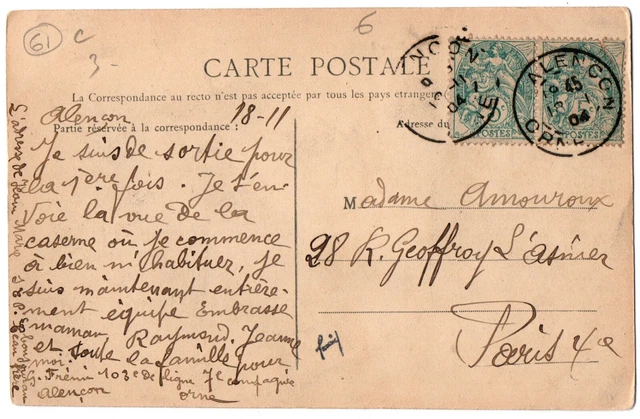 61
c
3-
6
CARTE POSTALE
La Correspondance au recto n'est pas acceptée par tous les pays étrangers
Partie réservée à la correspondance :
Adresse du
Alençon 18-11
Je suis de sortie pour
la 1ère fois. Je t'en
voie la vue de la
caserne où je commence
à bien m'habituer, je
suis maintenant entière-
ment équipé Embrasse
maman Raymond. Jeanne
et toute la famille pour
moi.
Frémin 103e de ligne 7e compagnie
Alençon Orne
L'adresse de Jean Marie
Madame Amouroux
28 R. Geoffroy L'Asnier
Paris 4e
ALENÇON
ORNE
04
ALENÇON
45
04
ORNE
POSTES
POSTES